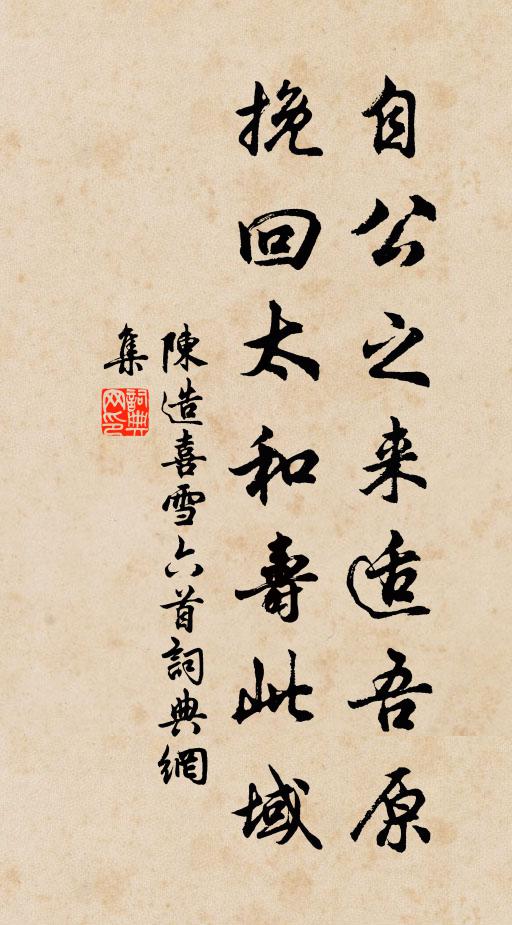 自公之来适吾原
挽回太和壽此域
陳造喜雪六首詞典網
集
詞典
网印